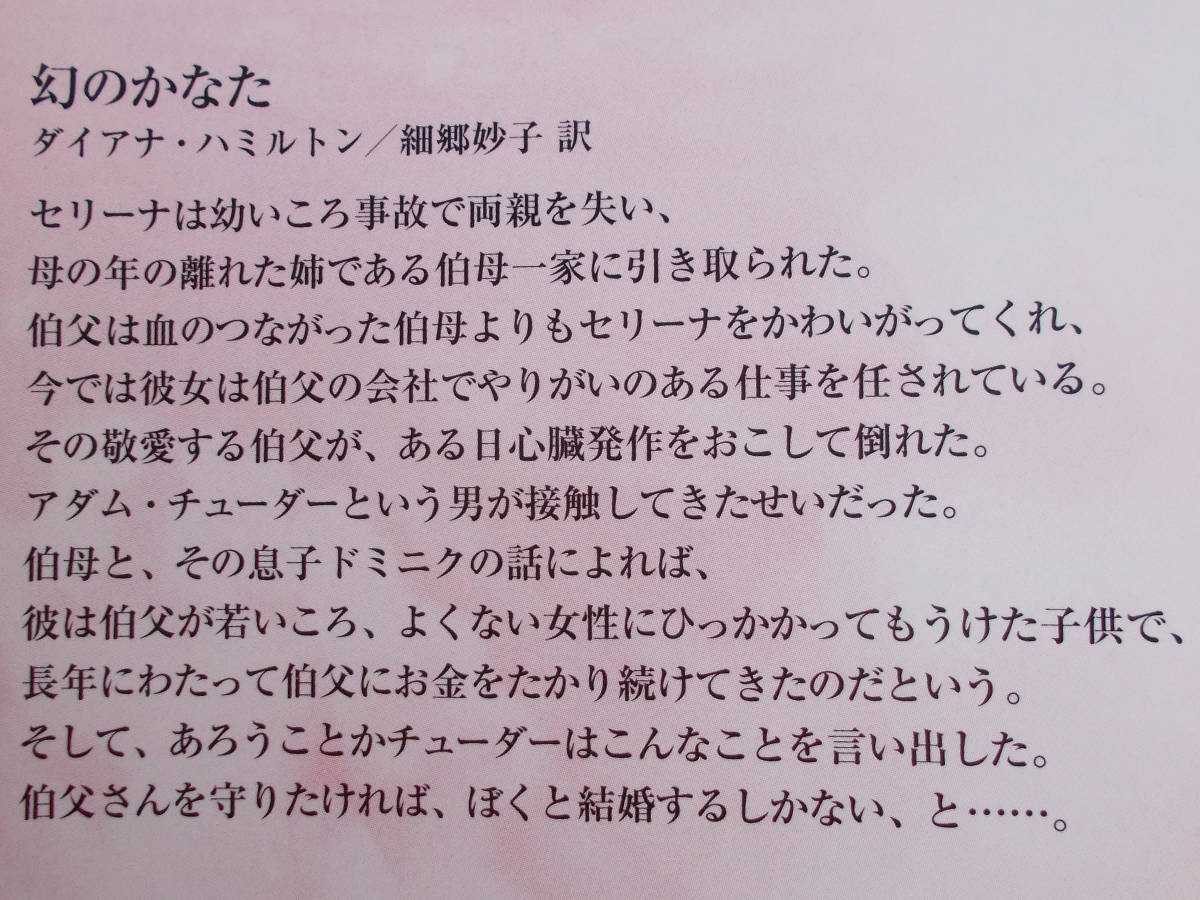 幻のかなた
ダイアナ・ハミルトン／細郷妙子 訳
セリーナは幼いころ事故で両親を失い、
母の年の離れた姉である伯母一家に引き取られた。
伯父は血のつながった伯母よりもセリーナをかわいがってくれ、
今では彼女は伯父の会社でやりがいのある仕事を任されている。
その敬愛する伯父が、ある日心臓発作をおこして倒れた。
アダム・チューダーという男が接触してきたせいだった。
伯母と、その息子ドミニクの話によれば、
彼は伯父が若いころ、よくない女性にひっかかってもうけた子供で、
長年にわたって伯父にお金をたかり続けてきたのだという。
そして、あろうことかチューダーはこんなことを言い出した。
伯父さんを守りたければ、ぼくと結婚するしかない、と……。